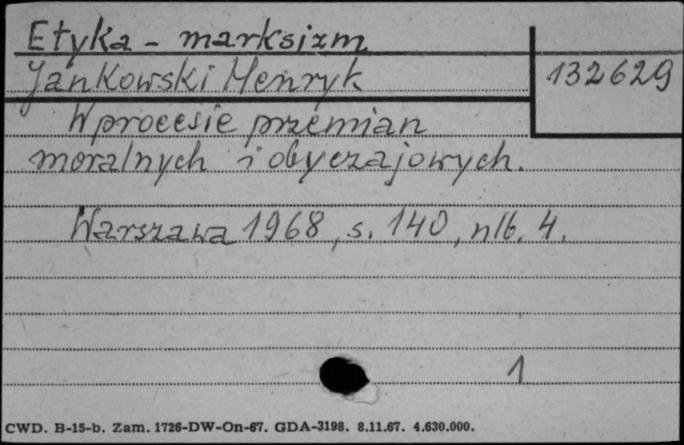 Etyka - marksizm
Jankowski Henryk
132629
W procesie przemian
moralnych i obyczajowych.
Warszawa 1968, s. 140, nlb. 4.
1
CWD. B-15-b. Zam. 1726-DW-On-67. GDA-3198. 8.11.67. 4.630.000.